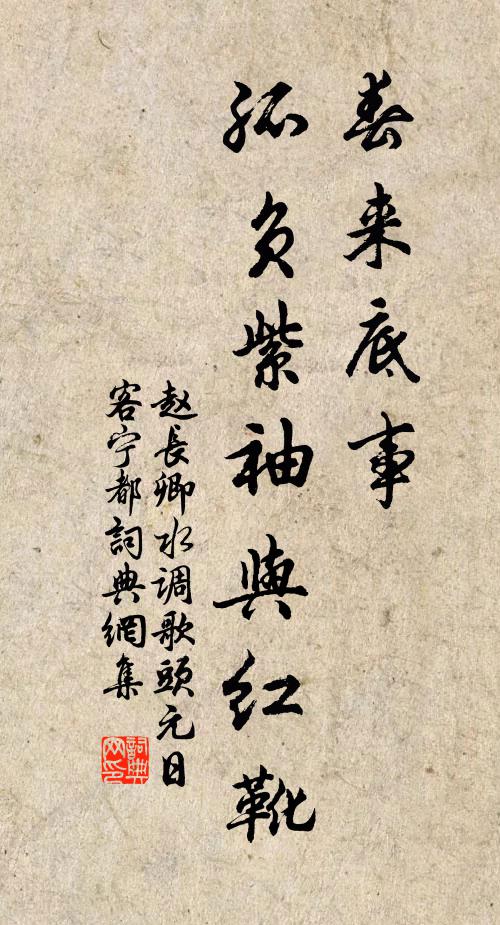 春来底事
孤负紫袖與红靴
赵長卿水调歌頭元日
客宁都詞典網集
詞典网印